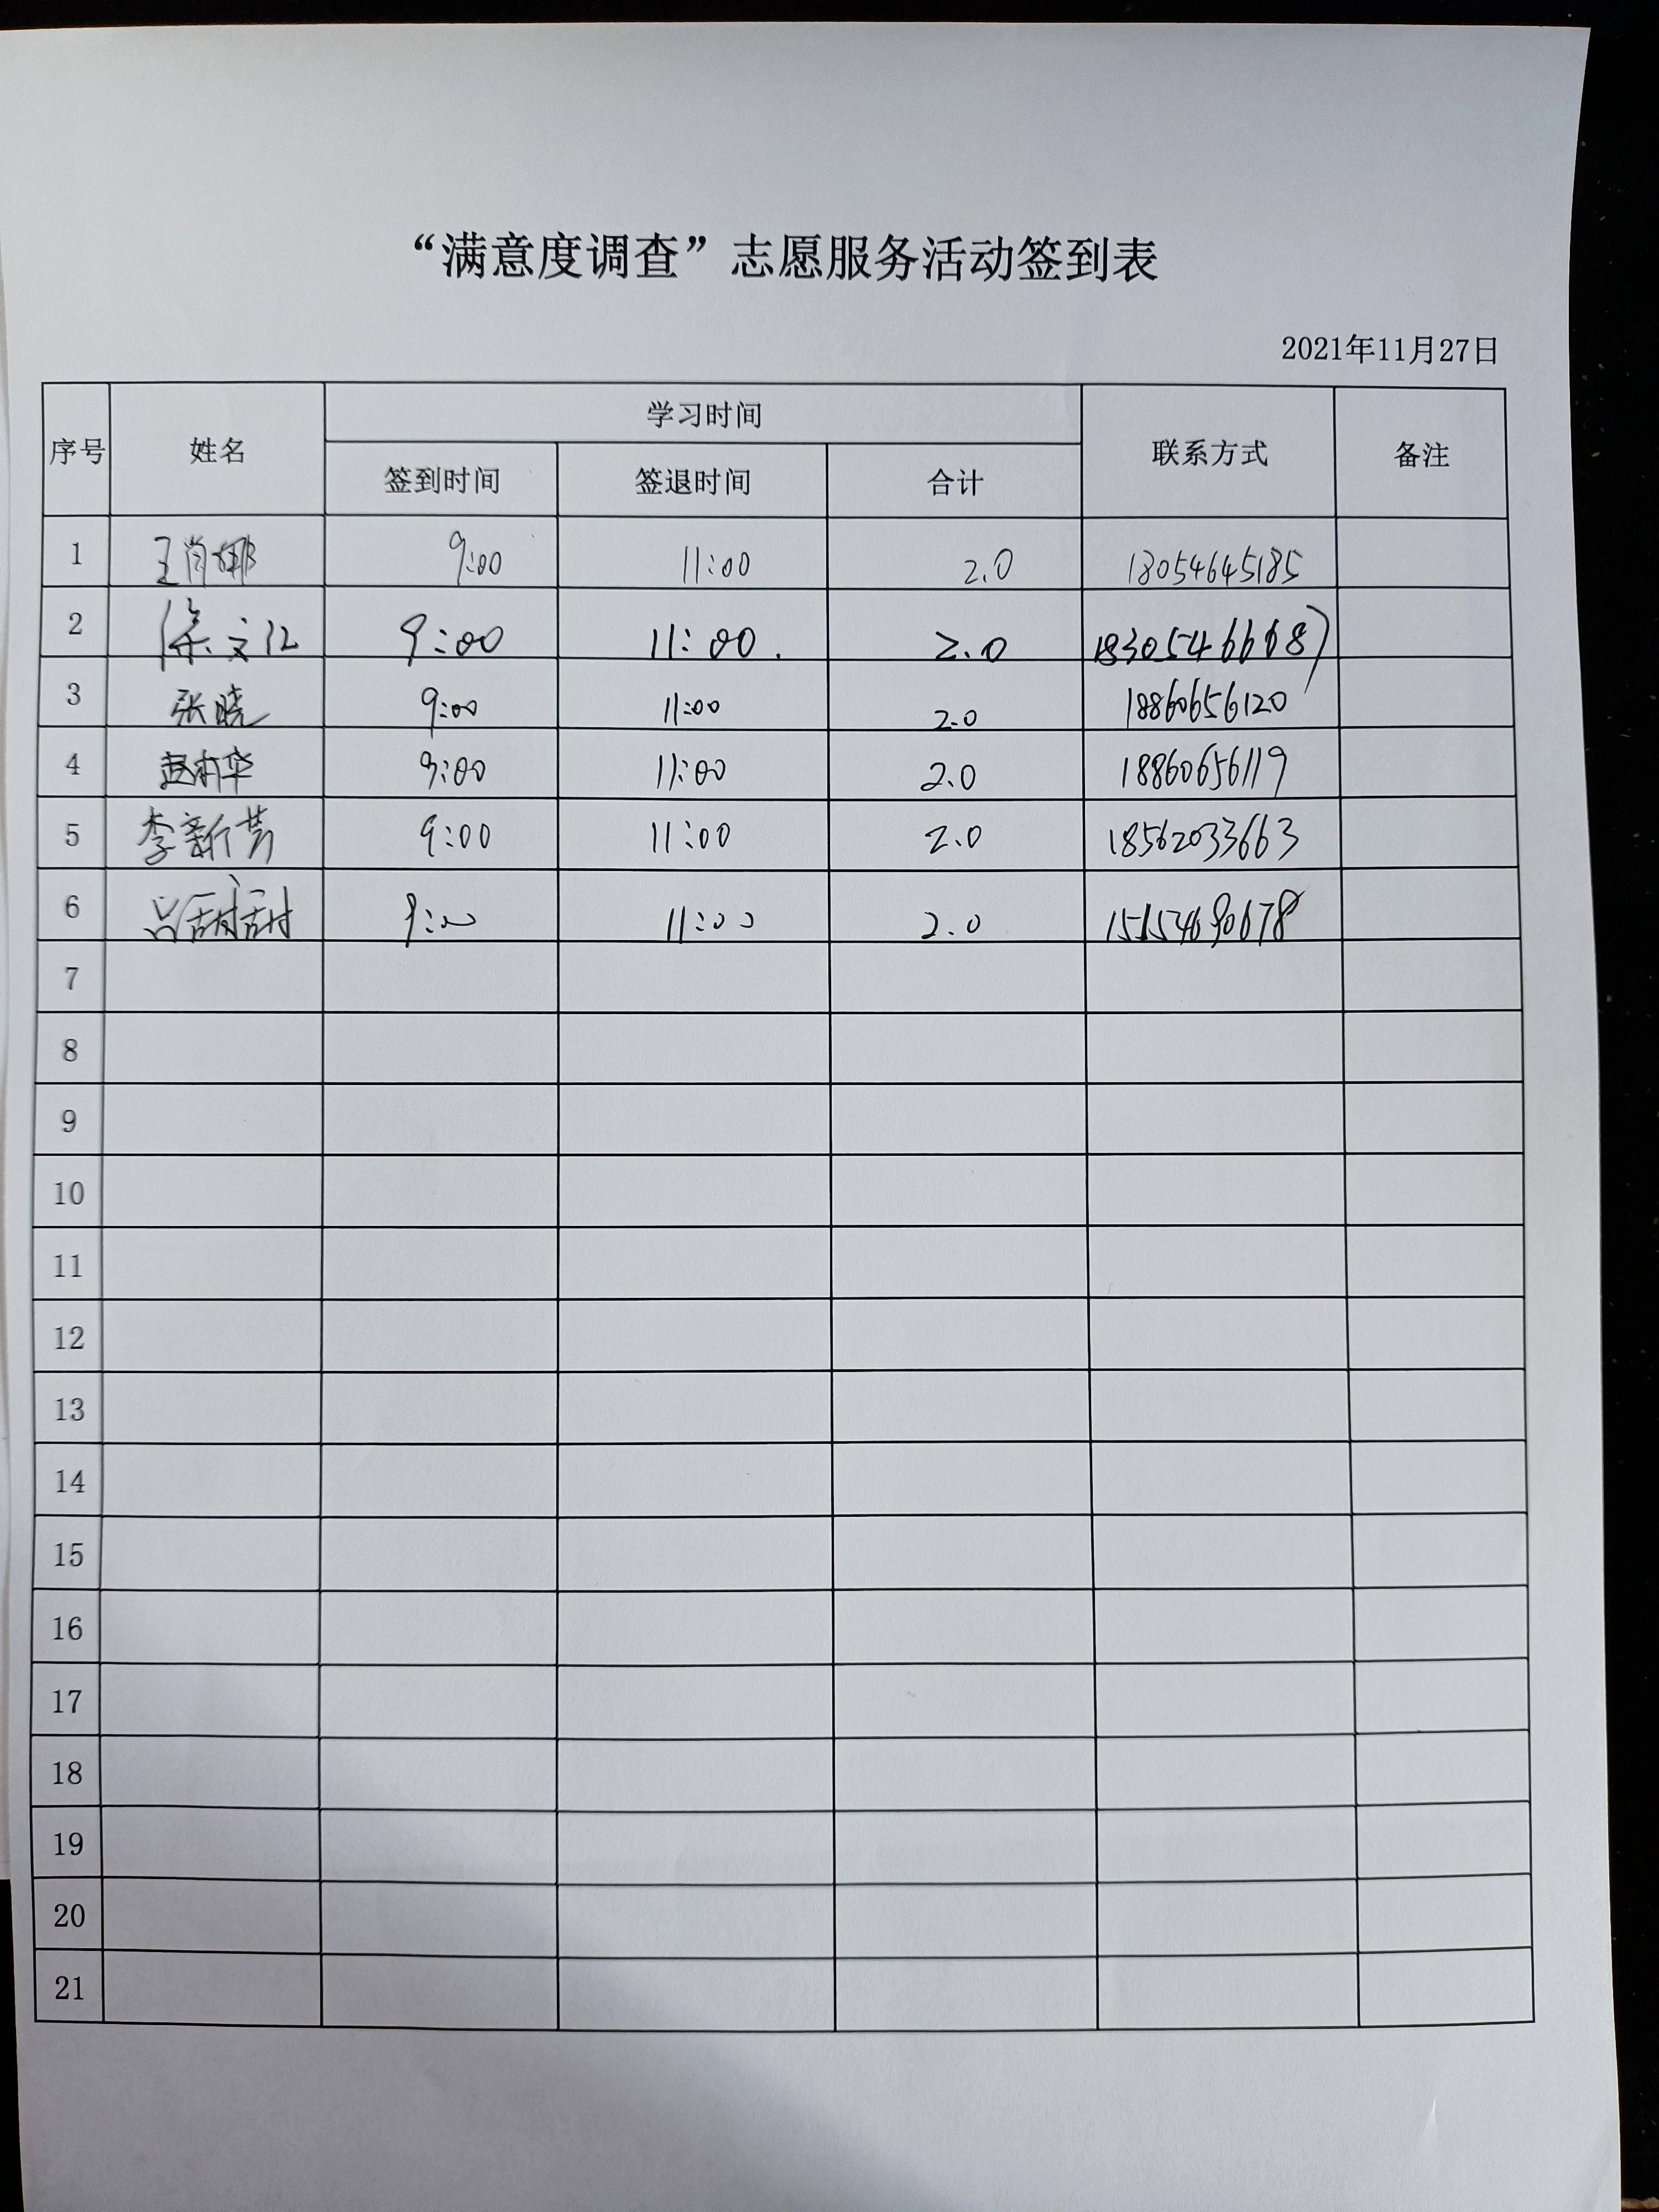 “满意度调查”志愿服务活动签到表
2021年11月27日
序号 姓名 学习时间 联系方式 备注
签到时间 签退时间 合计
1 王肖娜 9:00 11:00 2.0 13054645185
2 9:00 11:00. 2.0 18305466687
3 张晓 9:00 11:00 2.0 18860656120
4 9:00 11:00 2.0 18860656119
5 李新芳 9:00 11:00 2.0 18562033663
6 吕甜甜 9:00 11:00 2.0 15154690678
7
8
9
10
11
12
13
14
15
16
17
18
19
20
21